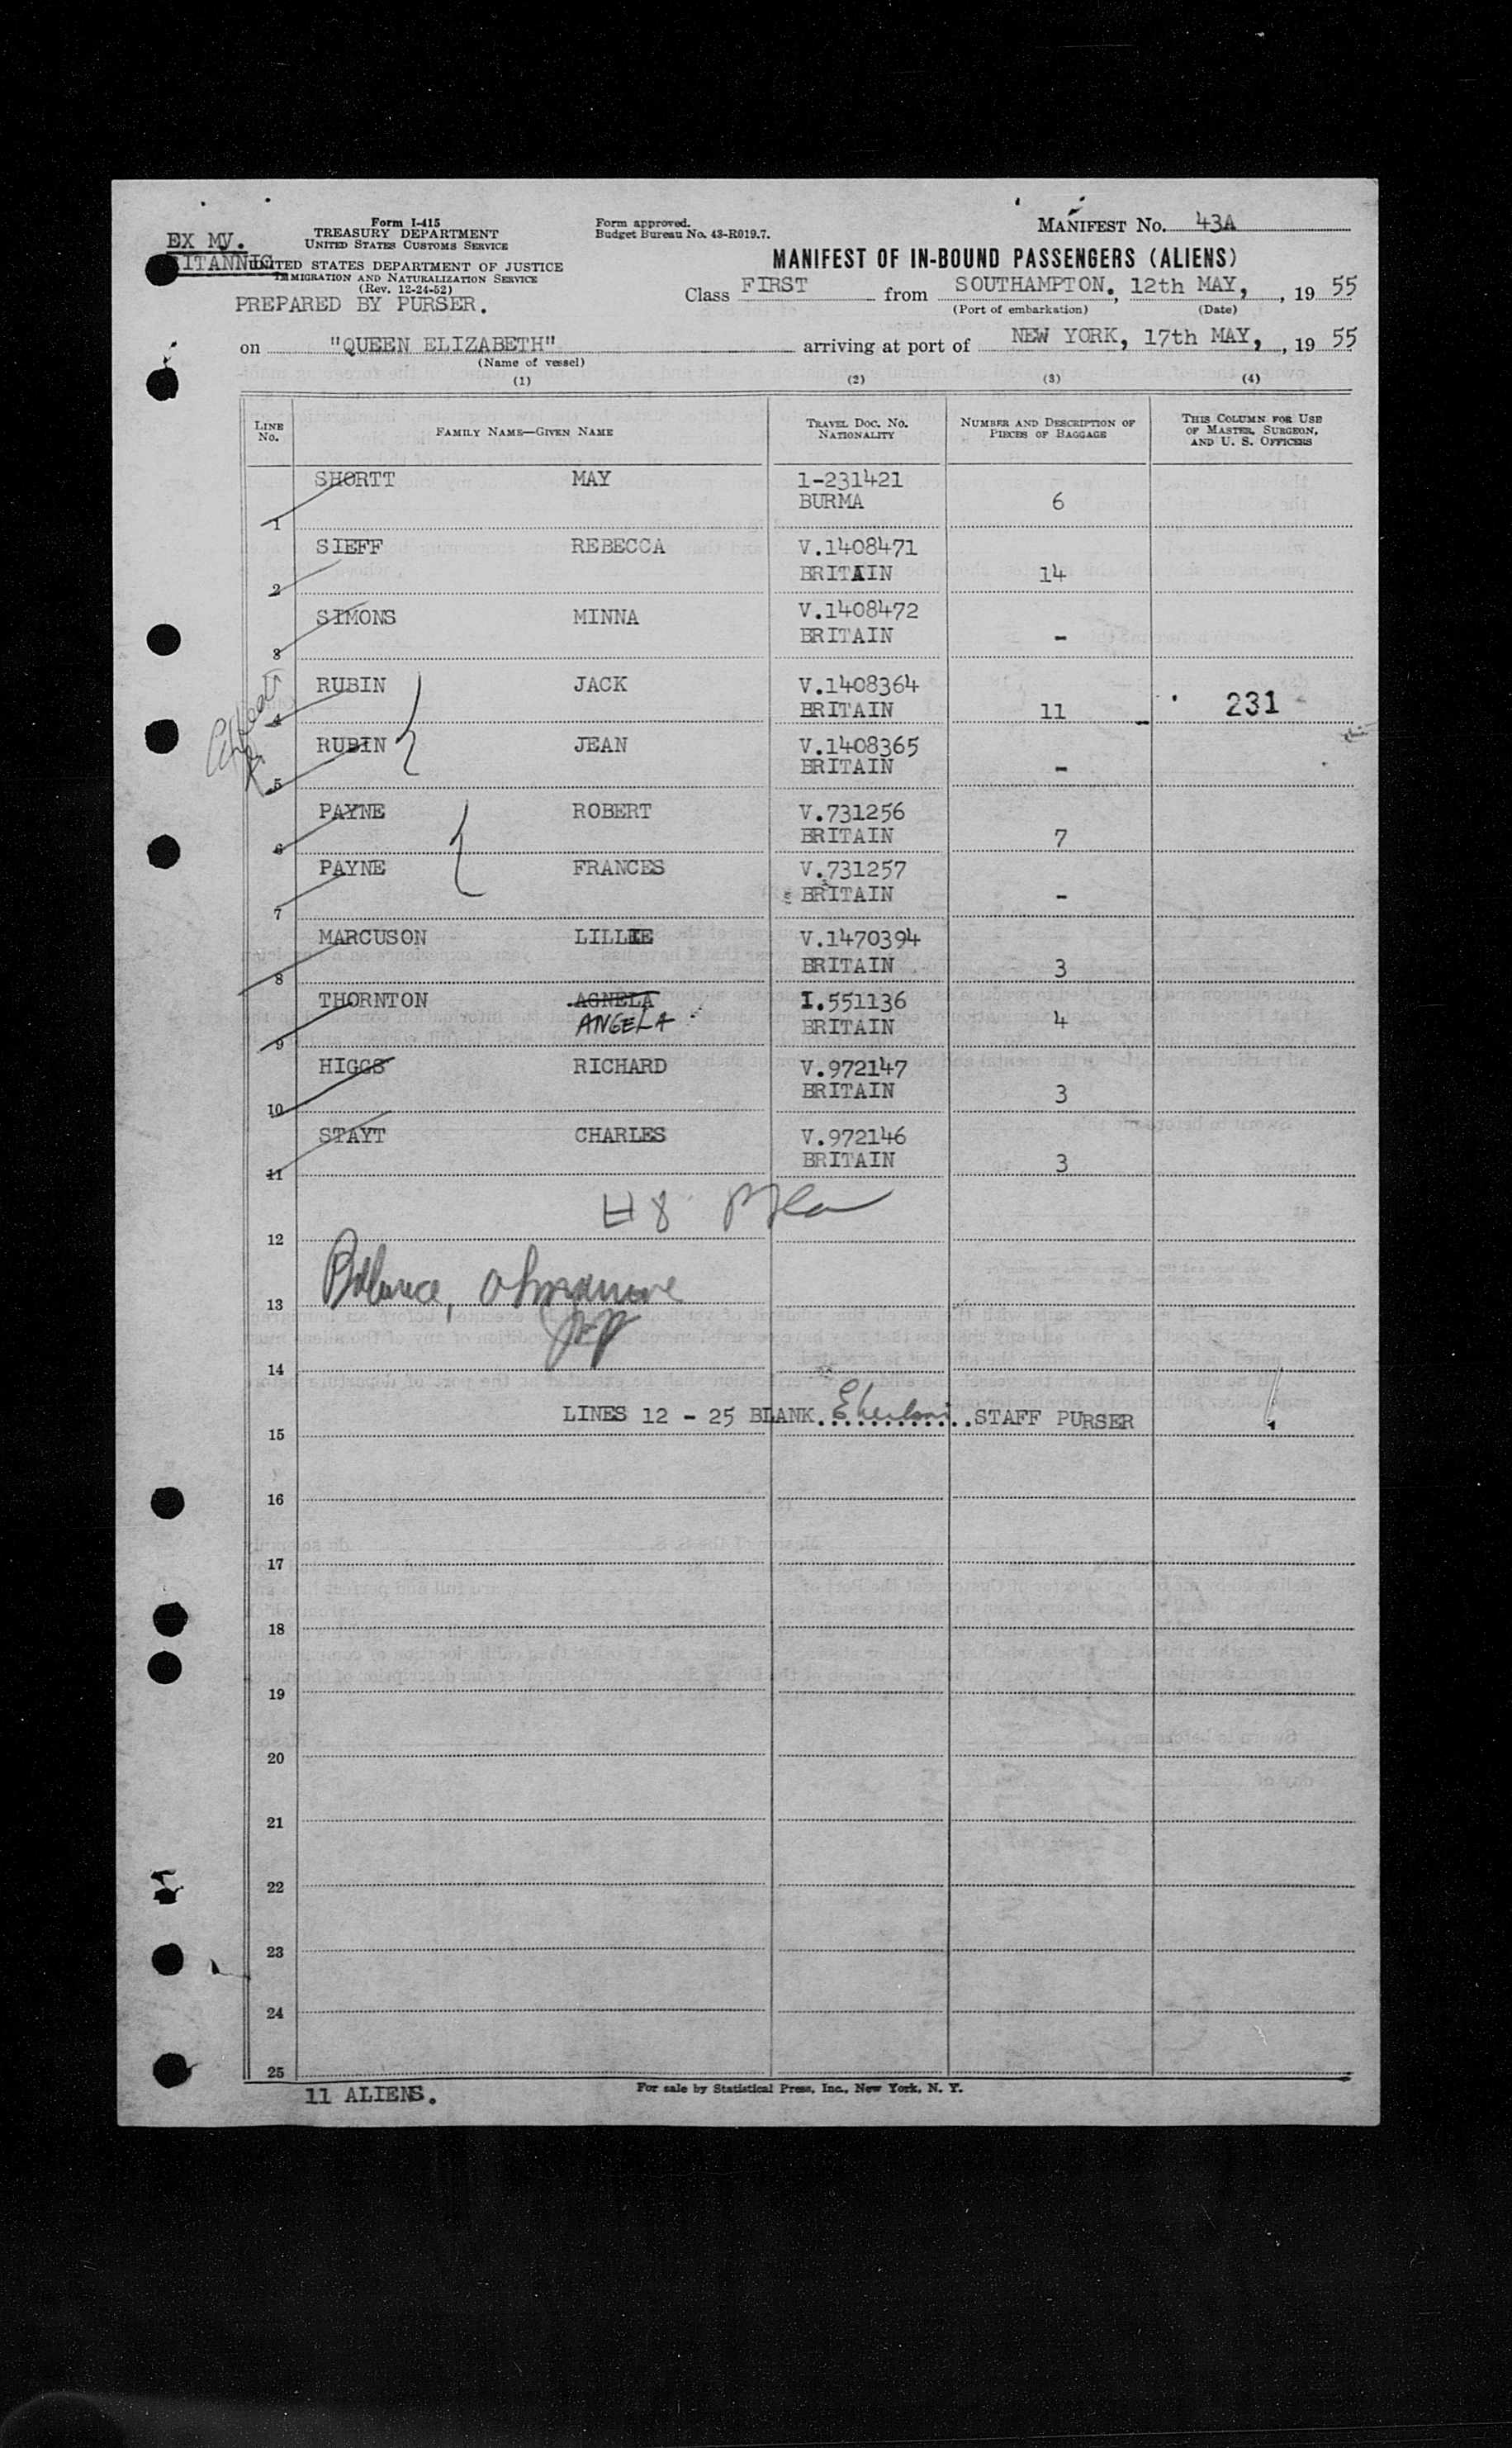 EX MV.
Form I-415
TREASURY DEPARTMENT
UNITED STATES CUSTOMS SERVICE
UNITED STATES DEPARTMENT OF JUSTICE
IMMIGRATION AND NATURALIZATION SERVICE
(Rev. 12-24-52)
PREPARED BY PURSER.
Form approved.
Budget Bureau No. 43-R019.7.
MANIFEST No. 43A
MANIFEST OF IN-BOUND PASSENGERS (ALIENS)
Class FIRST from SOUTHAMPTON., 12th MAY, , 19 55
(Port of embarkation) (Date)
on "QUEEN ELIZABETH" arriving at port of NEW YORK, 17th MAY, , 19 55
(Name of vessel)
(1) (2) (3) (4)
LINE No. FAMILY NAME—GIVEN NAME TRAVEL DOC. No. NATIONALITY NUMBER AND DESCRIPTION OF PIECES OF BAGGAGE THIS COLUMN FOR USE OF MASTER, SURGEON, AND U. S. OFFICERS
SHORTT MAY 1-231421
1 BURMA 6
SIEFF REBECCA V.1408471
2 BRITAIN 14
SIMONS MINNA V.1408472
3 BRITAIN -
RUBIN JACK V.1408364
4 BRITAIN 11 231
RUBIN JEAN V.1408365
5 BRITAIN -
PAYNE ROBERT V.731256
6 BRITAIN 7
PAYNE FRANCES V.731257
7 BRITAIN -
MARCUSON LILLIE V.1470394
8 BRITAIN 3
THORNTON AGNELA I.551136
9 ANGELA BRITAIN 4
HIGGS RICHARD V.972147
10 BRITAIN 3
STAYT CHARLES V.972146
11 BRITAIN 3
12
Balance,
13
14
LINES 12 - 25 BLANK. STAFF PURSER
15
16
17
18
19
20
21
22
23
24
25
11 ALIENS.
For sale by Statistical Press, Inc., New York, N. Y.